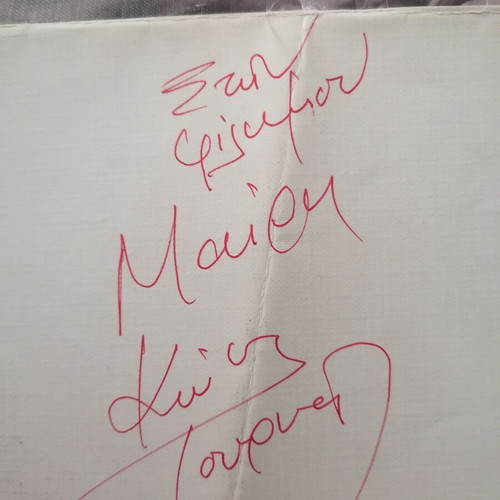 Στην
φίλη μου
Μαίρη
Κώστας
Τουρνάς